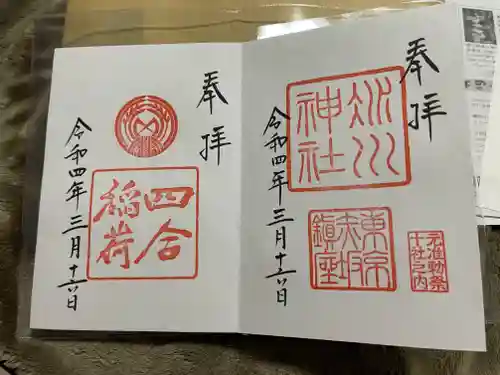 奉拝
氷川
神社
東京
赤坂
鎮座
元准勅祭
十社之内
令和四年三月十日
奉拝
四合
稲荷
令和四年三月十日